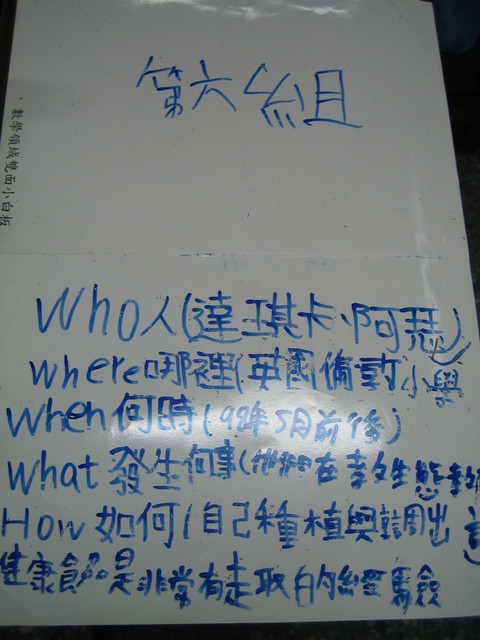 第六組
、數學領域雙面小白板
Who人(達琪卡、阿瑟)
where哪裡(英國倫敦小學
when何時(92年5月前後)
what發生何事(他們在教生態教
How如何(自己種植與調出
健康食品是非常有趣的經驗